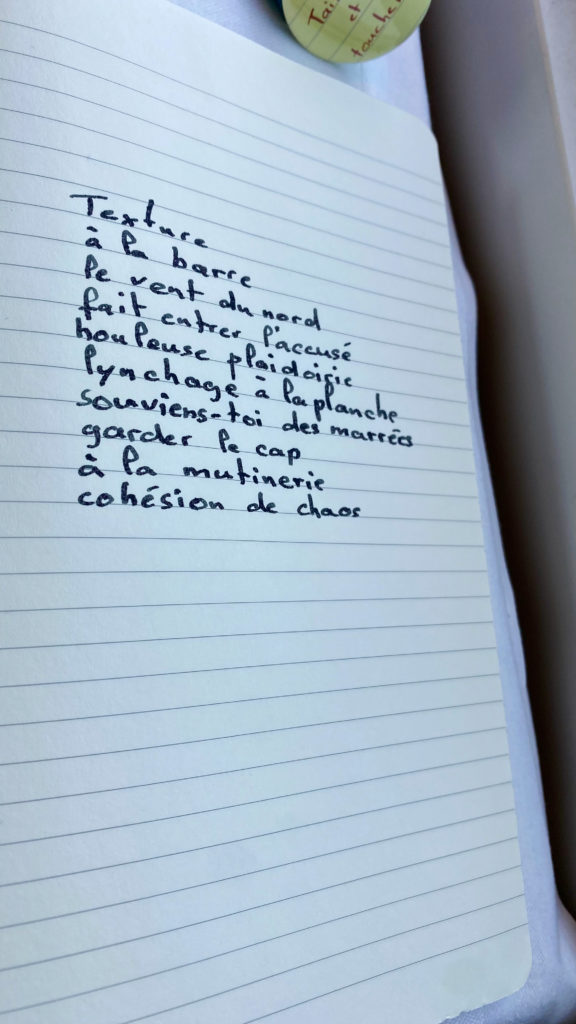 Tai
et
touche
Texture
à la barre
le vent du nord
fait entrer l'accusé
houleuse plaidoirie
lynchage à la planche
souviens-toi des marrées
garder le cap
à la mutinerie
cohésion de chaos